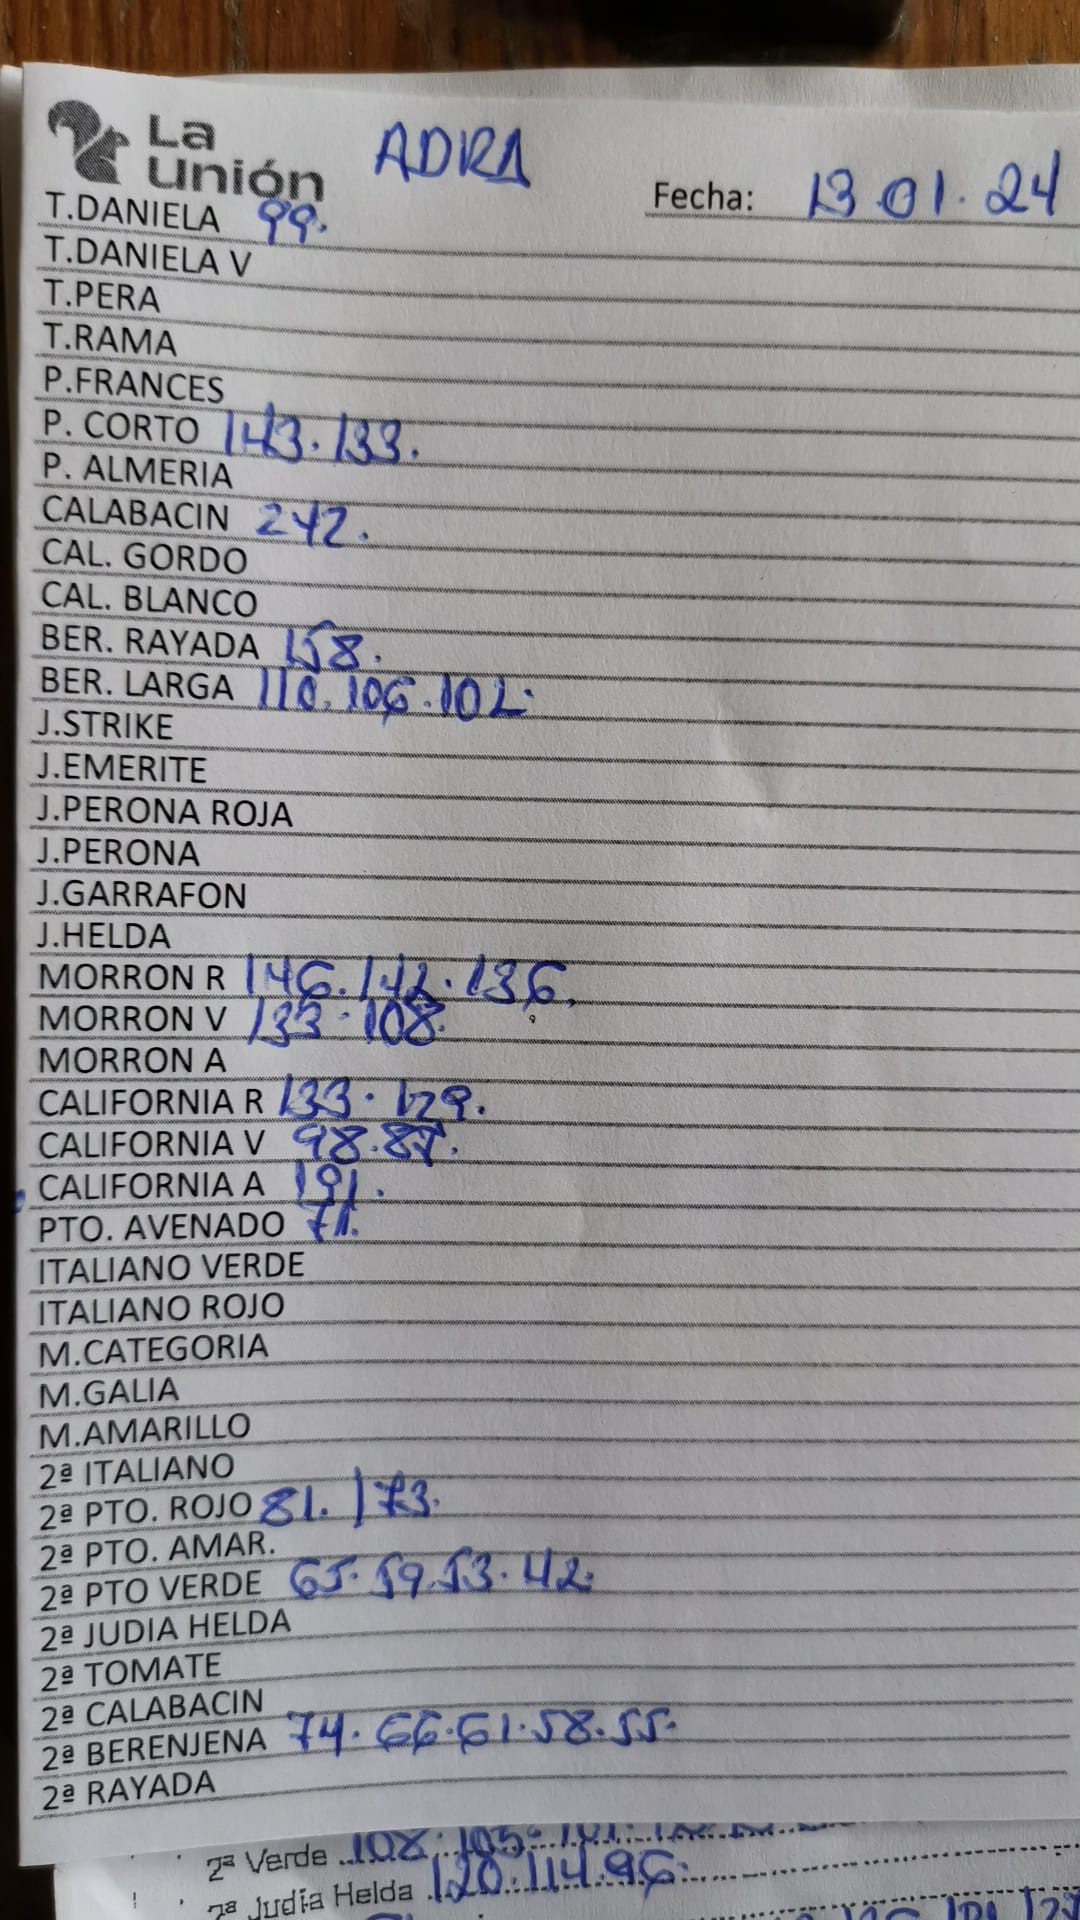 La
Unión
ADRA
Fecha: 13.01.24
T.DANIELA 99.
T.DANIELA V
T.PERA
T.RAMA
P.FRANCES
P. CORTO 143.133.
P. ALMERIA
CALABACIN 242.
CAL. GORDO
CAL. BLANCO
BER. RAYADA 158.
BER. LARGA 110.106.102.
J.STRIKE
J.EMERITE
J.PERONA ROJA
J.PERONA
J.GARRAFON
J.HELDA
MORRON R 146.142.136.
MORRON V 133.108.
MORRON A
CALIFORNIA R 133.129.
CALIFORNIA V 98.87.
CALIFORNIA A 191.
PTO. AVENADO 71.
ITALIANO VERDE
ITALIANO ROJO
M.CATEGORIA
M.GALIA
M.AMARILLO
2ª ITALIANO
2ª PTO. ROJO 81. 173.
2ª PTO. AMAR.
2ª PTO VERDE 65.59.53.42.
2ª JUDIA HELDA
2ª TOMATE
2ª CALABACIN
2ª BERENJENA 74.66.61.58.55.
2ª RAYADA
2ª Verde 108.105.101.
2ª Judía Helda 120.114.96.